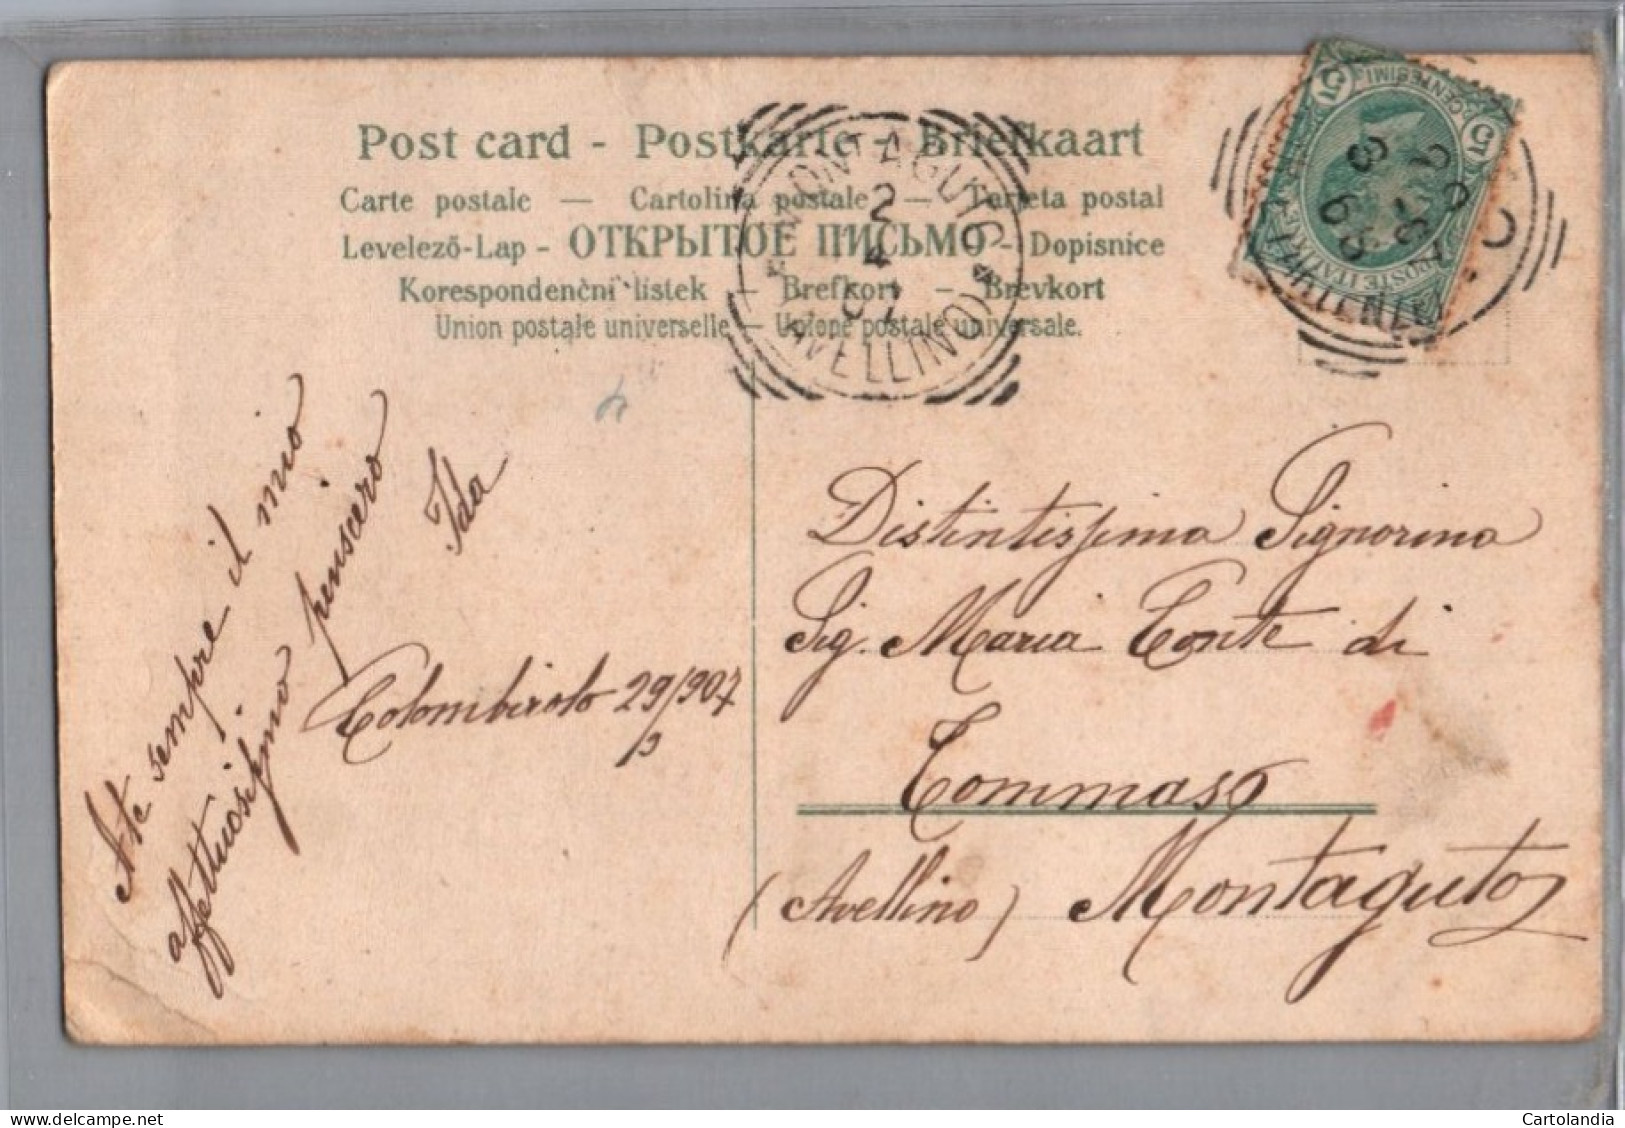 Post card - Postkarte - Briefkaart
Carte postale — Cartolina postale — Tarjeta postal
Levelező-Lap - ОТКРЫТОЕ ПИСЬМО - Dopisnice
Korespondenční listek — Brefkort — Brevkort
Union postale universelle — Unione postale universale.
MONTAGUTO
2
4
07
(AVELLINO)
5 CENTESIMI 5
POSTE ITALIANE
A te sempre il mio
affettuosissimo pensiero
Ida
Colombirolo 29/907
3
Distintissima Signorina
Sig. Maria Conte di
Tommaso
(Avellino) Montaguto
Cartolandia